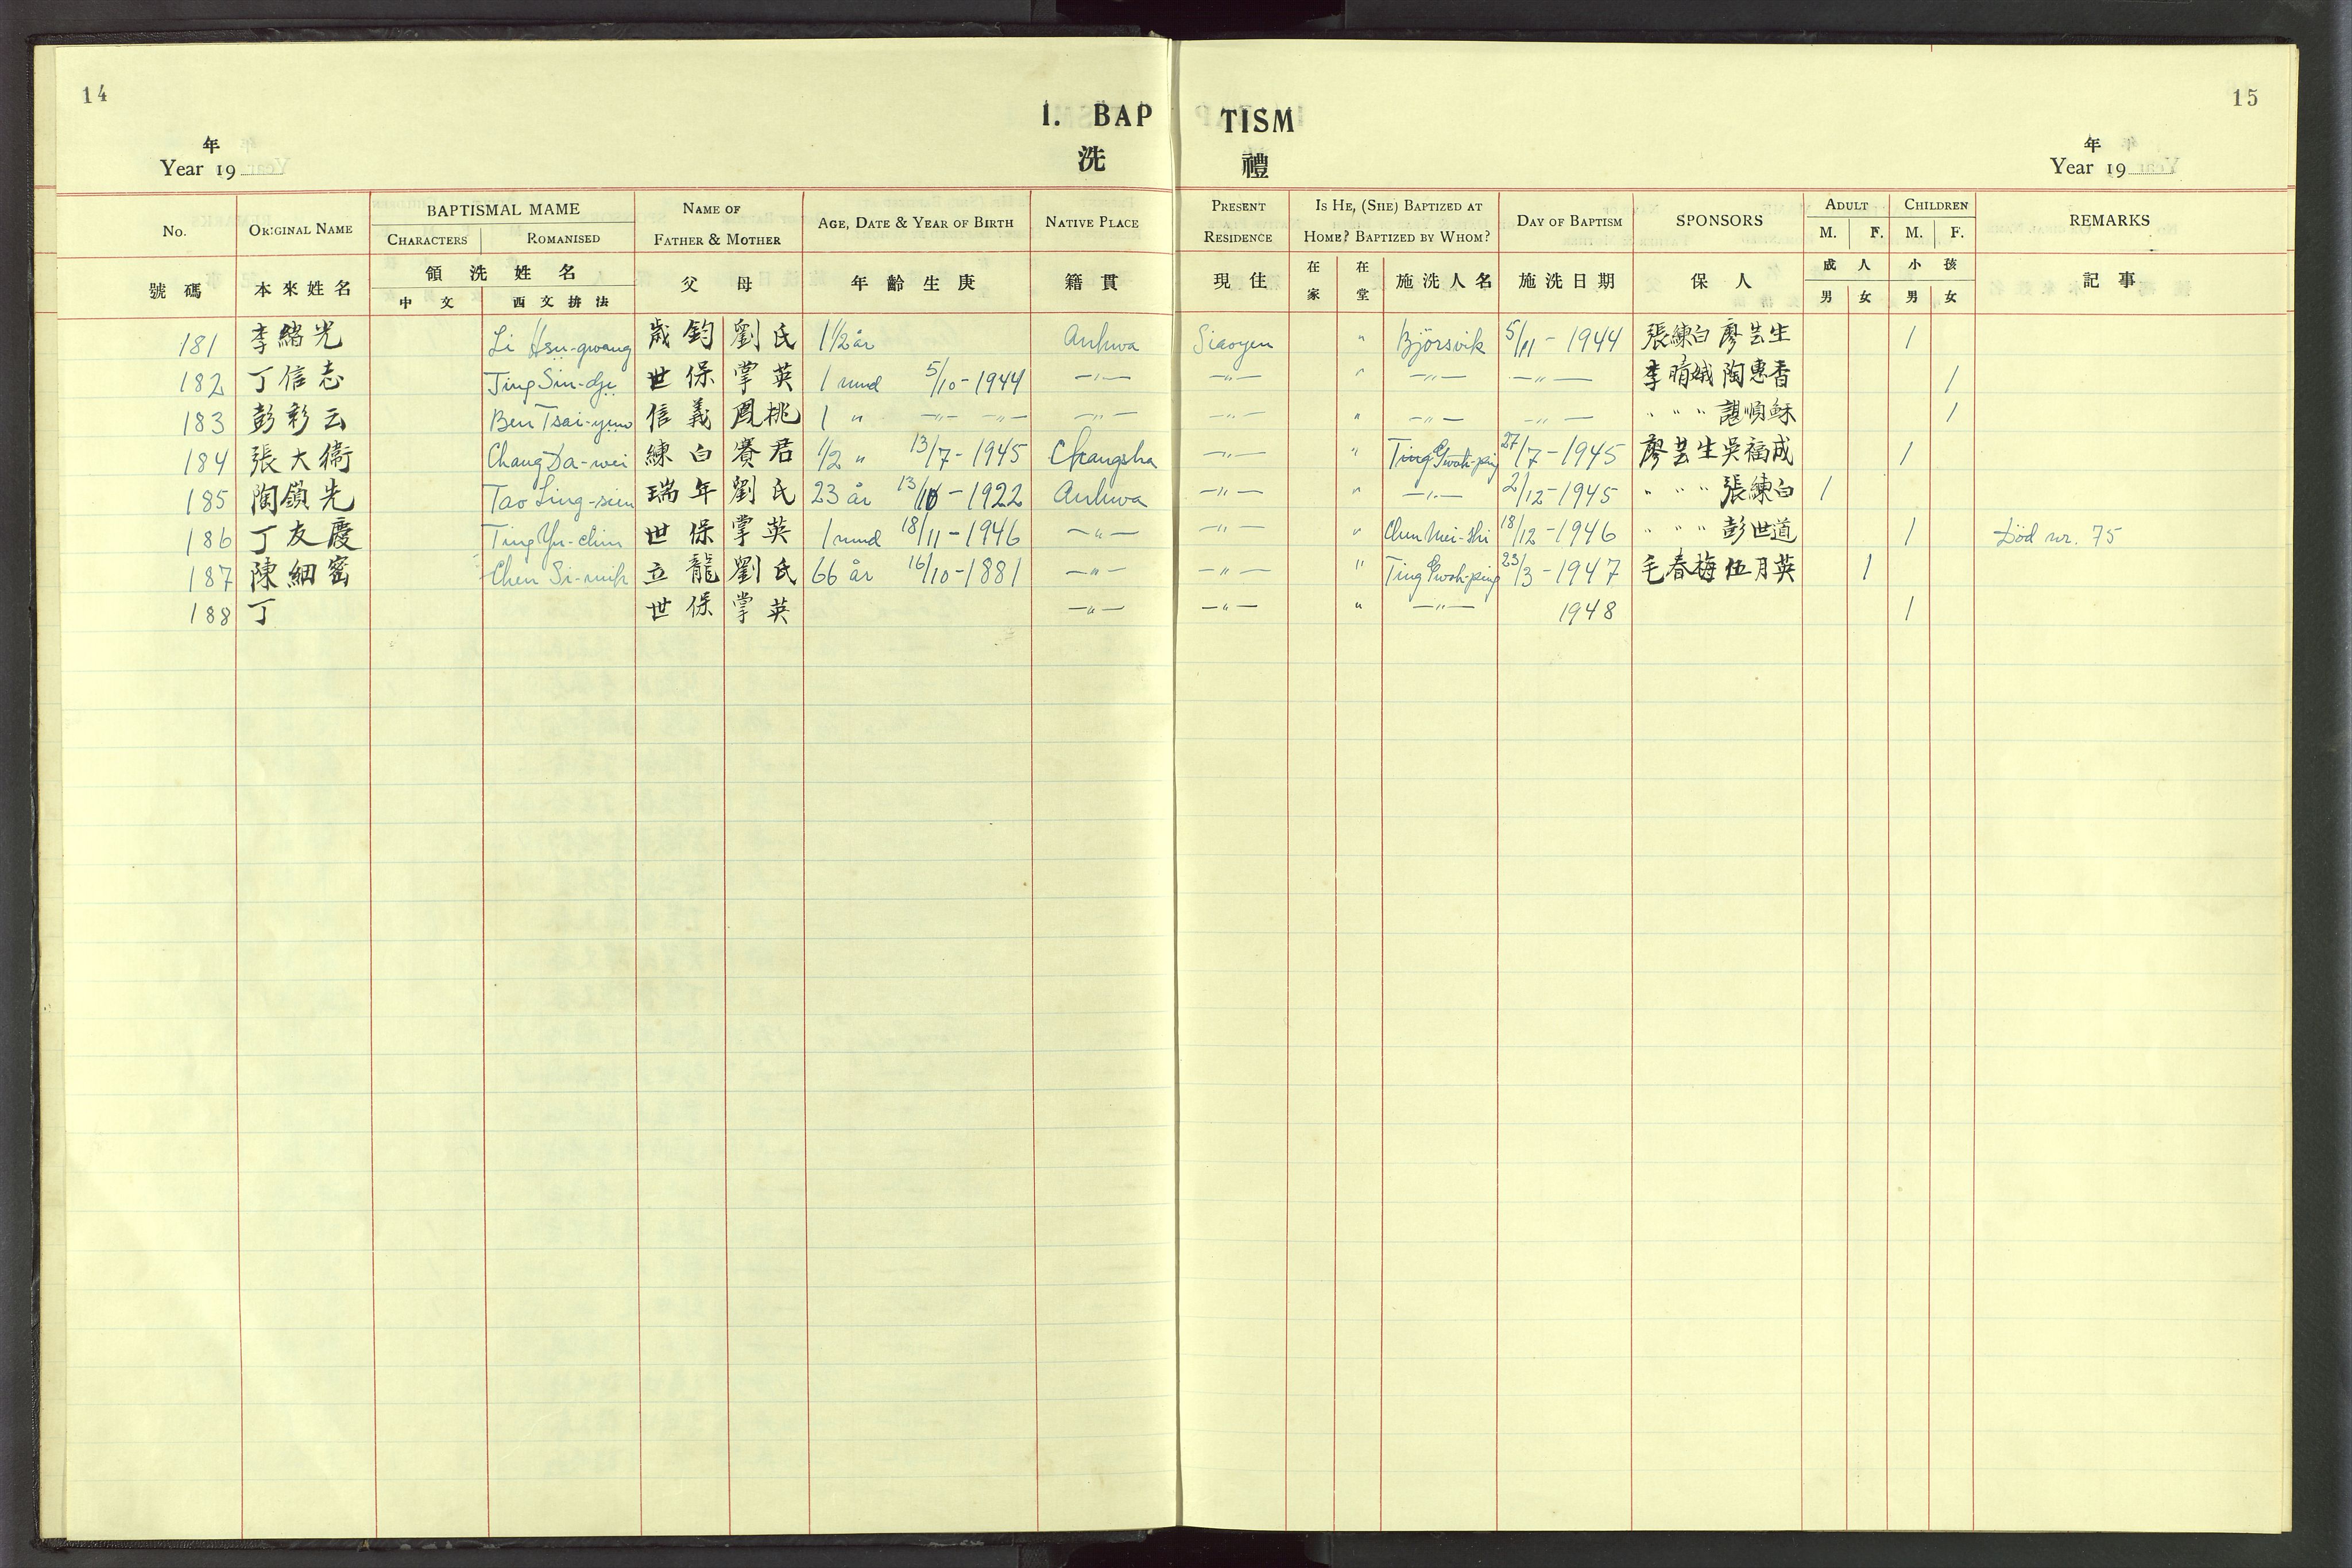 14
15
I. BAP TISM
洗 禮
年
Year 19
年
Year 19
No. ORIGINAL NAME BAPTISMAL MAME NAME OF FATHER & MOTHER AGE, DATE & YEAR OF BIRTH NATIVE PLACE PRESENT RESIDENCE IS HE, (SHE) BAPTIZED AT HOME? BAPTIZED BY WHOM? DAY OF BAPTISM SPONSORS ADULT CHILDREN REMARKS
CHARACTERS ROMANISED M. F. M. F.
號碼 本來姓名 領洗姓名 父 母 年齡生庚 籍貫 現住 在家 在堂 施洗人名 施洗日期 保人 成人 小孩 記事
中文 西文拚法 男 女 男 女
181 李緒光 Li Hsu-gwang 歲鈞 劉氏 1 1/2 år Anhwa Siaoyen " Björsvik 5/11 - 1944 張練白 廖芸生 1
182 丁信志 Ting Sin-dje 世保 掌英 1 mnd 5/10 - 1944 —"— —"— " —"— —"— 李 娥 陶惠香 1
183 彭彩云 Ben Tsai-yun 信義 鳳桃 1 " —"— —"— —"— —"— " —"— —"— " " " 諶順穌 1
184 張大衛 Chang Da-wei 練白 賽君 1/2 " 13/7 - 1945 Changsha —"— " Ting Gwoh-ping 27/7 - 1945 廖芸生 吳福成 1
185 陶鎖先 Tao Ling-sien 瑞年 劉氏 23 år 13/ - 1922 Anhwa —"— " —"— 2/12 - 1945 " " " 張練白 1
186 丁友慶 Ting Yu-chin 世保 掌英 1 mnd 18/11 - 1946 —"— —"— " Chen Mei-shi 18/12 - 1946 " " " 彭世道 1 Död nr. 75
187 陳細密 Chen Si-mih 立龍 劉氏 66 år 16/10 - 1881 —"— —"— " Ting Gwoh-ping 23/3 - 1947 毛春梅 伍月英 1
188 丁 世保 掌英 —"— —"— " —"— 1948 1